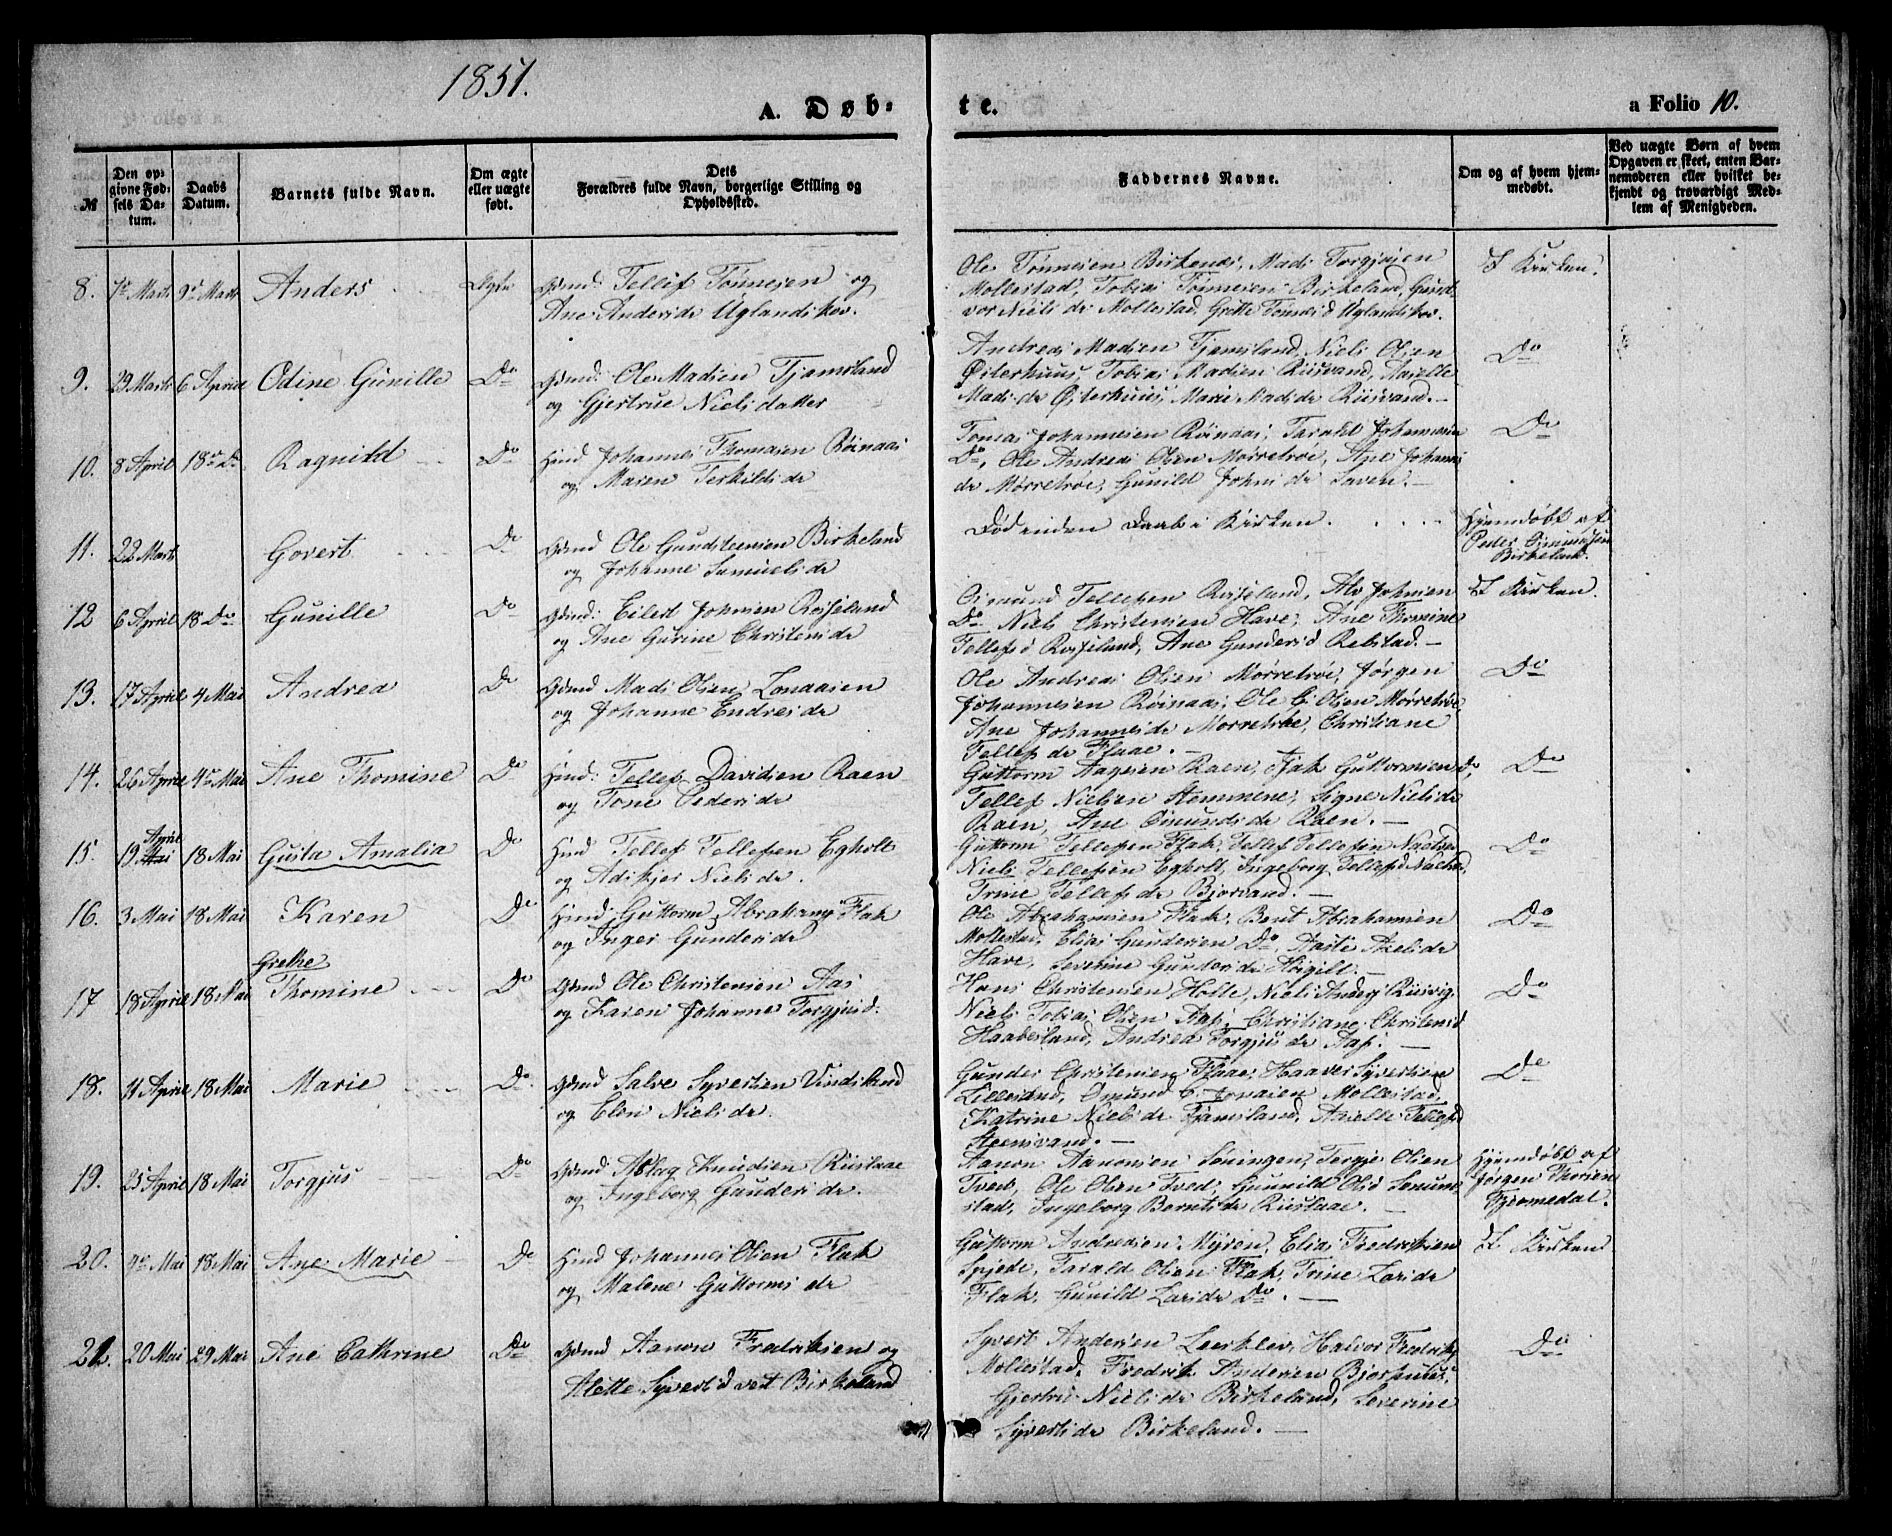 1851.
A. Døb-
te.
a Folio 10.
№
Den op-
givne Fød-
sels Da-
tum.
Daabs
Datum.
Barnets fulde Navn.
Om ægte
eller uægte
født.
Dets
Forældres fulde Navn, borgerlige Stilling og
Opholdssted.
Faddernes Navne.
Om og af hvem hjem-
medøbt.
Ved uægte Børn af hvem
Opgaven er skeet, enten Bar-
nemoderen eller hvilket be-
kjendt og troværdigt Med-
lem af Menigheden.
8. 7de Marts 9de Marts Anders Ægte Gdmd: Tellef Tønnesen og
Ane Andersdr Uglandskov.
Ole Tønnesen Birkenes, Mads Torgjusen
Mollestad, Tobias Tønnesen Birkeland, Gund
vor Niels dr Mollestad, Grette Tønnes d Uglandskov.
I Kirken.
9. 29 Marts 6 April Odine Gunille Do Gdmd: Ole Madsen Tjamsland
og Gjertrue Nielsdatter
Andreas Madsen Tjamsland, Niels Olsen
Østerhuus, Tobias Madsen Riisvand, Aselle
Mads dr Østerhuus, Marie Mads dr Riisvand.
Do
10. 8 April 18de Do Ragnild Do Hmd Johannes Thomasen Röinaas
og Maren Terkilds dr
Tomas Johannesen Röinaas, Tarald Johannesen
Do, Ole Andreas Olsen Mørretroe, Ane Johannes
dr Mørretroe, Gunild Johns dr Saven.
Do
11. 22 Marts Govert Do Gdmd Ole Gundsteensen Birkeland
og Johanne Samuels dr
Død inden Daab i Kirken.
Hjemdøbt af
Peder Osmundsen
Birkeland.
12 6 April 18 Do Gunille Do Gdmd: Eilert Johnsen Roiseland
og Ane Gurine Christensdr
Osmund Tellefsen Roiseland, Alv Johnsen
Do Niels Christensen Have, Ane Thomine
Tellefsd Roiseland, Ane Gundersd Rebstad.
I Kirken.
13. 17 April 4 Mai Andrea Do Gdmd Mads Olsen
og Johanne Endresdr
Ole Andreas Olsen Mørretroe, Jørgen
Johannesen Röinaas, Ole C. Olsen Mørretroe,
Ane Johannesdr Mørretroe, Christiane
Tellefs dr Flaae.
Do
14. 26 April 4de Mai Ane Thomine Do Hmd: Tellef Davidsen Raen
og Tone Pedersdr
Guttorm Aagesen Raen, Isak Guttormsen Do,
Tellef Nielsen Stemmene, Signe Nielsdr
Raen, Ane Osmunds dr Raen.
Do
15. 19 April Mai 18 Mai Gusta Amalia Do Hmd Tellef Tellefsen Egholt
og Adikjes Nielsdr.
Guttorm Tellefsen Flak, Tellef Tellefsen
Niels Tellefsen Egholt, Ingeborg Tellefsd
Trine Tellefs dr Bjorvand.
Do
16. 3 Mai 18 Mai Karen Do Hmd: Guttorm Abrahams Flak
og Inger Gundersdr
Ole Abrahamsen Flak, Bent Abrahamsen
Mollestad, Elias Gundersen Do Aaste Axels dr
Have, Severine Gunders dr Høigilt.
Do
17 18 April 18 Mai Grethe
Thomine Do Gdmd Ole Christensen Aas
og Karen Johanne Torgjusd.
Hans Christensen Holte, Niels Anders Riisvig
Niels Tobias Olsen Aas, Christiane Christensd
Haabesland, Andrea Torgjus dr Aas.
Do
18. 11 April 18 Mai Marie Do Gdmd Salve Syvertsen Vindsland
og Elen Nielsdr.
Gunder Christensen Flaae, Haaver Syvertsen
Lillesand, Osmund C. Jonasen Mollestad,
Katrine Niels dr Tjamsland, Aselle Tellefsd
Steensvand.
Do
19. 25 April 18 Mai Torgjus Do Gdmd: Aslag Knudsen Riislaae
og Ingeborg Gundersdr.
Aanon Aanonsen Søningen, Torgje Olsen
Tved, Ole Olsen Tved, Gunnild Olsd Senum
stad, Ingeborg Berntsdr Riislaae.
Hjemdøbt af
Jørgen Thorsen
Tjermedal.
20. 9de Mai 18 Mai Ane Marie Do Hmd Johannes Olsen Flak
og Malene Guttorms dr
Guttorm Andreasen Myren, Elias Fredriksen
Spjøde, Tarald Olsen Flak, Trine Larsdr
Flak, Gunild Larsdr Do.
I Kirken
21. 20 Mai 29 Mai Ane Cathrine Do Gdmd Aanon Fredriksen og
Alette Syverts d ved Birkeland
Syvert Andersen Leerklev, Halvor Fredriks
Mollestad, Fredrik Andersen Bjorhuus,
Gjertru Niels dr Birkeland, Severine
Syvertsdr Birkeland.
Do